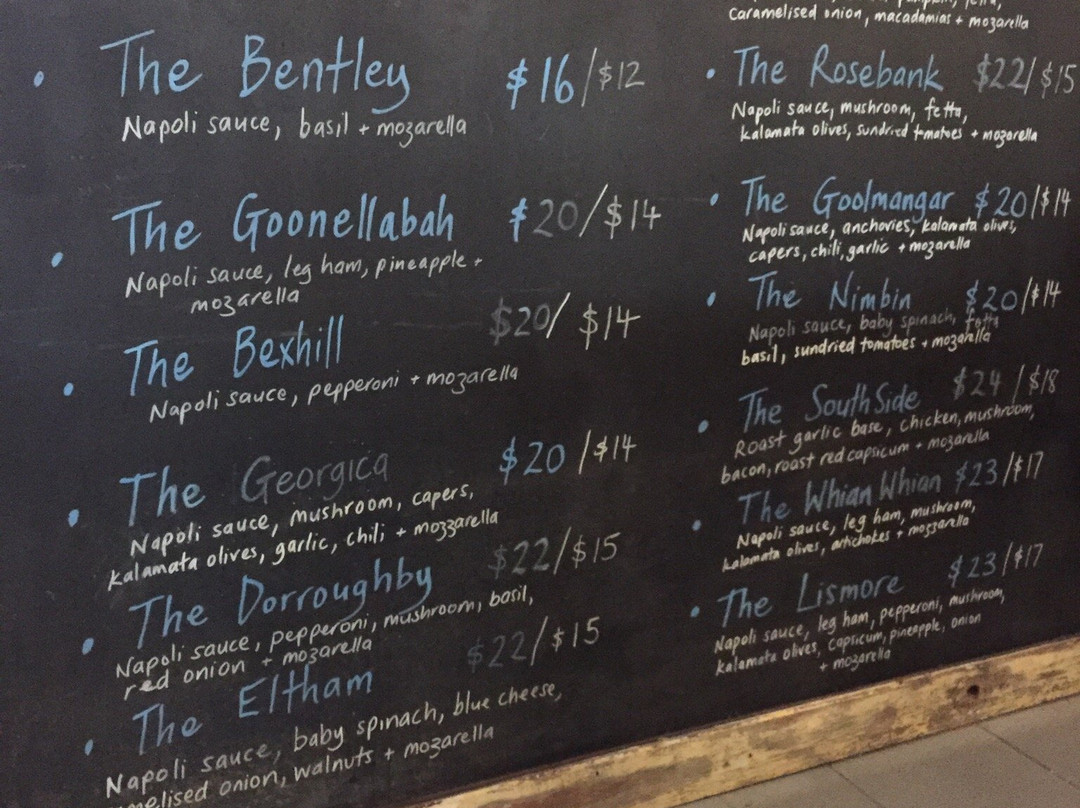 The Bentley $16/$12
Napoli sauce, basil + mozarella
The Goonellabah $20/$14
Napoli sauce, leg ham, pineapple +
mozarella
The Bexhill $20/ $14
Napoli sauce, pepperoni + mozarella
The Georgica $20/$14
Napoli sauce, mushroom, capers,
kalamata olives, garlic, chili + mozzarella
The Dorroughby $22/$15
Napoli sauce, pepperoni, mushroom, basil,
red onion + mozarella
The Eltham $22/$15
Napoli sauce, baby spinach, blue cheese,
onion, walnuts + mozarella
Caramelised onion, macadamias + mozarella
The Rosebank $22/$15
Napoli sauce, mushroom, fetta,
kalamata olives, sundried tomatoes + mozarella
The Goolmangar $20/$14
Napoli sauce, anchovies, kalamata olives,
capers, chili, garlic + mozarella
The Nimbin $20/$14
Napoli sauce, baby spinach, fetta
basil, sundried tomatoes + mozarella
The South Side $24/$18
Roast garlic base, chicken, mushroom,
bacon, roast red capsicum + mozarella
The Whian Whian $23/$17
Napoli sauce, leg ham, mushroom,
kalamata olives, artichokes + mozzarella
The Lismore $23/$17
Napoli sauce, leg ham, pepperoni, mushroom,
kalamata olives, capsicum, pineapple, onion
+ mozarella